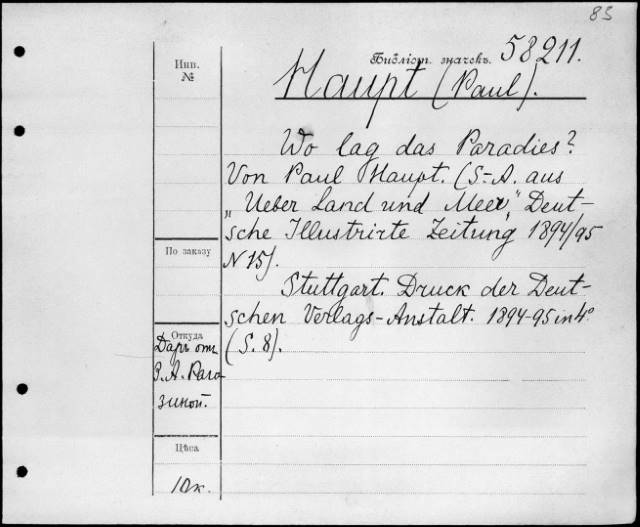 83
Инв.
№
Библіот. значекъ. 58211.
Haupt (Paul).
Wo lag das Paradies?
Von Paul Haupt. (S.-A. aus
„Ueber Land und Meer," Deut-
sche Illustrirte Zeitung 1894/95
N 15).
Stuttgart. Druck der Deut-
schen Verlags-Anstalt. 1894-95 in 4°
(S. 8).
По заказу
Откуда
Даръ отъ
З. А. Раго-
зиной.
Цѣна
10 к.